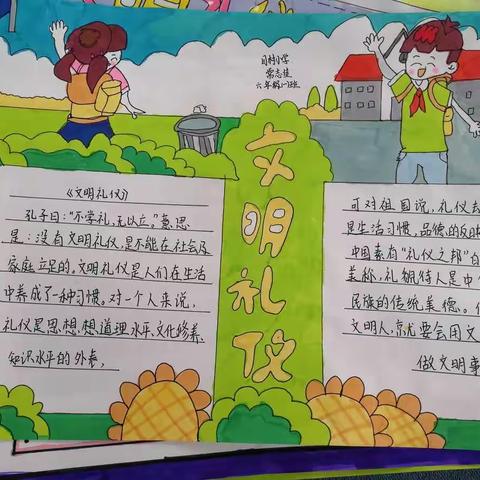 文明礼仪
《文明礼仪》
孔子曰:“不学礼,无以立。”意思
是:没有文明礼仪,是不能在社会及
家庭立足的,文明礼仪是人们在生活
中养成了一种习惯。对一个人来说,
礼仪是思想,想道理水平、文化修养、
知识水平的外表,
六年级(一)班
可对祖国说,礼仪
是生活习惯,品德的反映
中国素有“礼仪之邦”
美称,礼貌待人是中
民族的传统美德。
文明人,京尤要会用文
做文明事